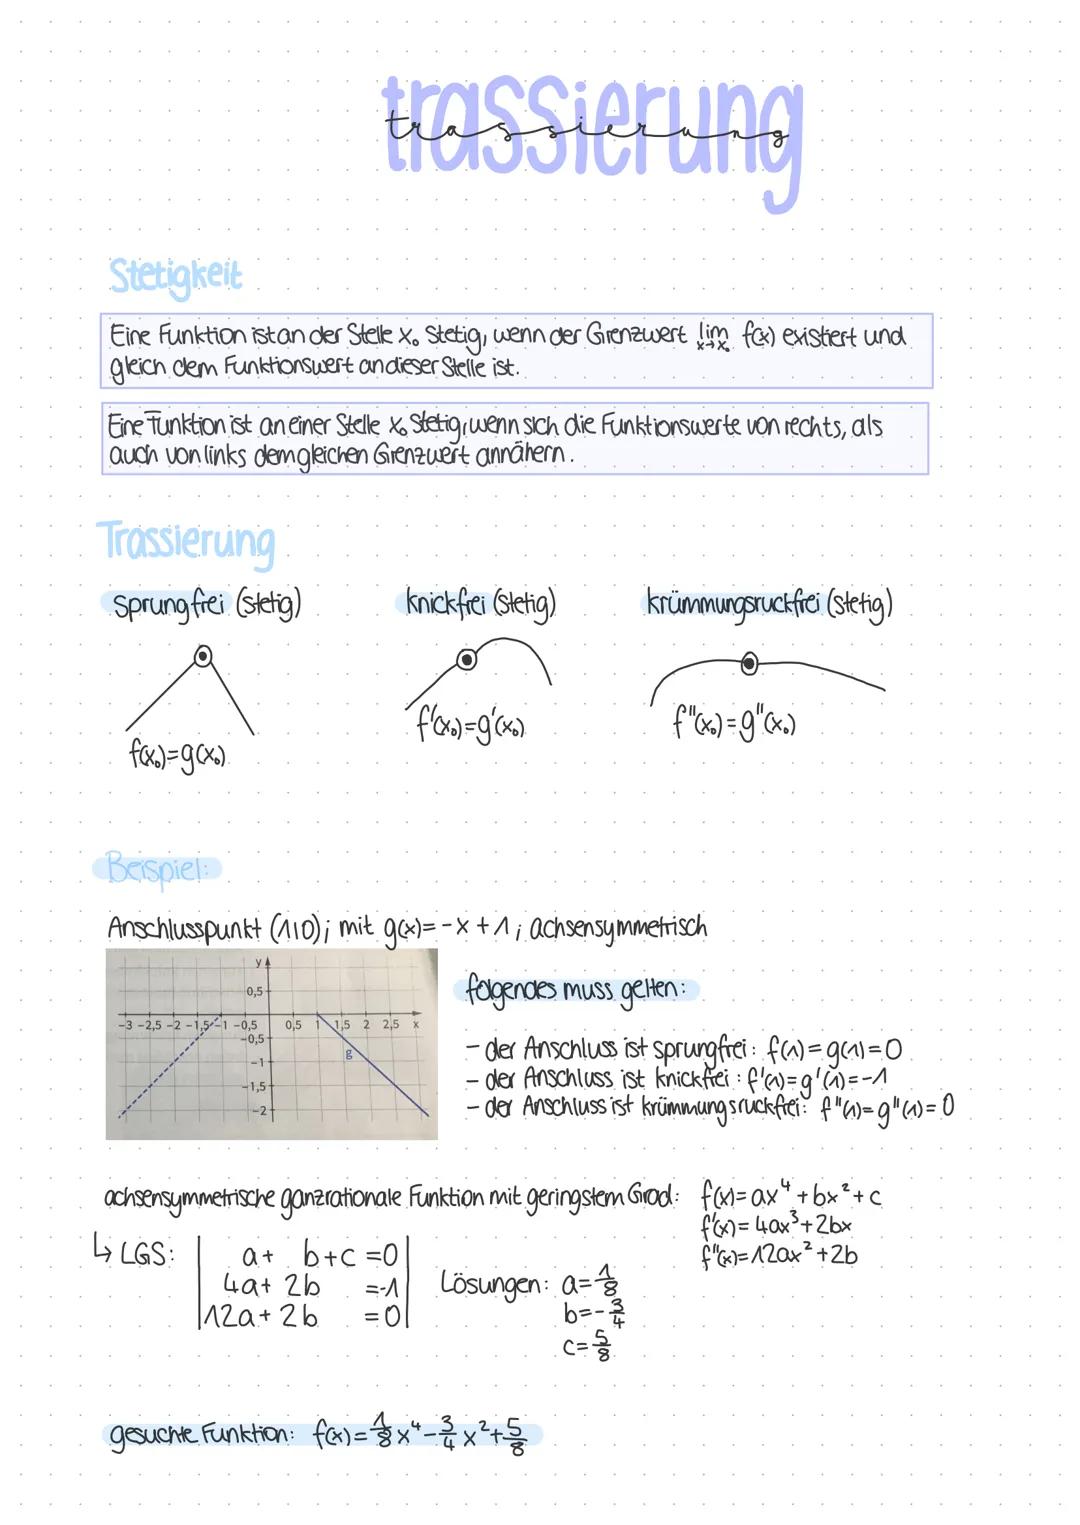 trassierung
trassierung
Stetigkeit
Eine Funktion ist an der Stelle x₀ stetig, wenn der Grenzwert lim x→x₀ f(x) existiert und
gleich dem Funktionswert an dieser Stelle ist.
Eine Funktion ist an einer Stelle x₀ stetig, wenn sich die Funktionswerte von rechts, als
auch von links dem gleichen Grenzwert annähern.
Trassierung
sprungfrei (stetig) knickfrei (stetig) krümmungsruckfrei (stetig)
f(x₀)=g(x₀) f'(x₀)=g'(x₀) f"(x₀)=g"(x₀)
Beispiel:
Anschlusspunkt (1|0); mit g(x)= -x +1; achsensymmetrisch
y
0,5
-3 -2,5 -2 -1,5 -1 -0,5 0,5 1 1,5 2 2,5 x
-0,5
g
-1
-1,5
-2
folgendes muss gelten:
- der Anschluss ist sprungfrei: f(1)=g(1)=0
- der Anschluss ist knickfrei: f'(1)=g'(1)=-1
- der Anschluss ist krümmungsruckfrei: f"(1)=g"(1)=0
achsensymmetrische ganzrationale Funktion mit geringstem Grad: f(x)=ax⁴+bx²+c
f'(x)=4ax³+2bx
f"(x)=12ax²+2b
↳ LGS: a+ b+c =0
4a+ 2b =-1
12a+2b =0
Lösungen: a=1/8
b=-3/4
c=5/8
gesuchte Funktion: f(x)=1/8x⁴-3/4x²+5/8